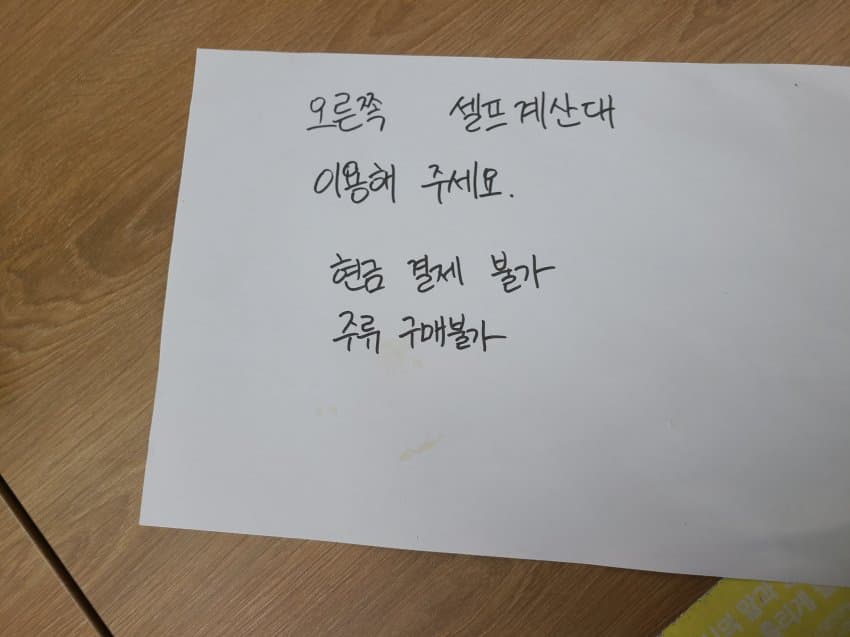 오른쪽 셀프계산대
이용해 주세요.
현금 결제 불가
주류 구매불가